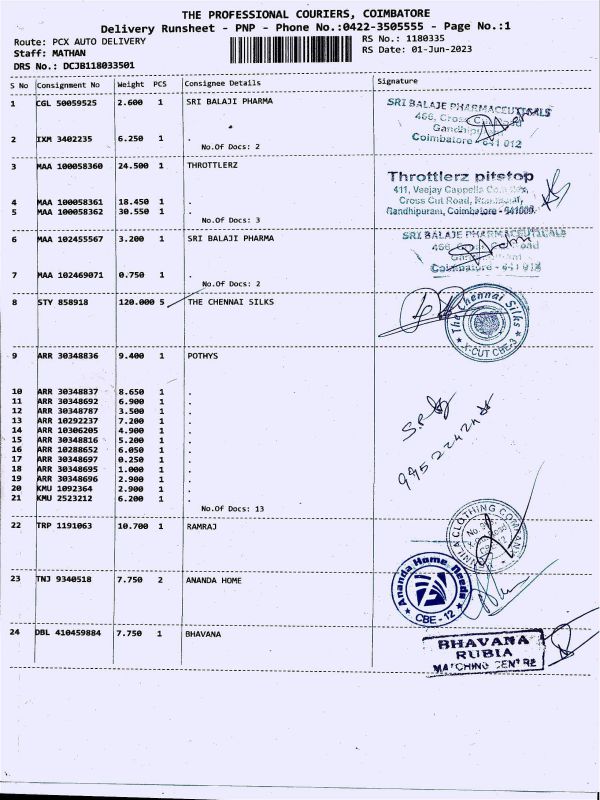 THE PROFESSIONAL COURIERS, COIMBATORE
Delivery Runsheet - PNP - Phone No.:0422-3505555 - Page No.:1
Route: PCX AUTO DELIVERY RS No.: 1180335
Staff: MATHAN RS Date: 01-Jun-2023
DRS No.: DCJB118033501
S No Consignment No Weight PCS Consignee Details Signature
1 CGL 50059525 2.600 1 SRI BALAJI PHARMA
SRI BALAJE PHARMACEUTICALS
466, Cross
2 IXM 3402235 6.250 1 .
Coimbatore - 641 012
No.Of Docs: 2
3 MAA 100058360 24.500 1 THROTTLERZ
Throttlerz pitstop
411, Veejay Cappella
4 MAA 100058361 18.450 1 .
Cross Cut Road,
5 MAA 100058362 30.550 1 .
Gandhipuram, Coimbatore - 641009.
No.Of Docs: 3
6 MAA 102455567 3.200 1 SRI BALAJI PHARMA
SRI BALAJE PHARMACEUTICALS
7 MAA 102469071 0.750 1 .
Coimbatore - 641 012
No.Of Docs: 2
8 STY 858918 120.000 5 THE CHENNAI SILKS
The Chennai Silks
X-CUT CBE-3
9 ARR 30348836 9.400 1 POTHYS
10 ARR 30348837 8.650 1 .
11 ARR 30348692 6.900 1 .
12 ARR 30348787 3.500 1 .
13 ARR 10292237 7.200 1 .
14 ARR 10306205 4.900 1 .
15 ARR 30348816 5.200 1 .
16 ARR 10288652 6.050 1 .
17 ARR 30348697 0.250 1 .
18 ARR 30348695 1.000 1 .
19 ARR 30348696 2.900 1 .
20 KMU 1092364 2.900 1 .
21 KMU 2523212 6.200 1 .
No.Of Docs: 13
22 TRP 1191063 10.700 1 RAMRAJ
CLOTHING COMPANY
23 TNJ 9340518 7.750 2 ANANDA HOME
Ananda Home Needs
CBE - 12
24 DBL 410459884 7.750 1 BHAVANA
BHAVANA
RUBIA
MATCHING CENTRE